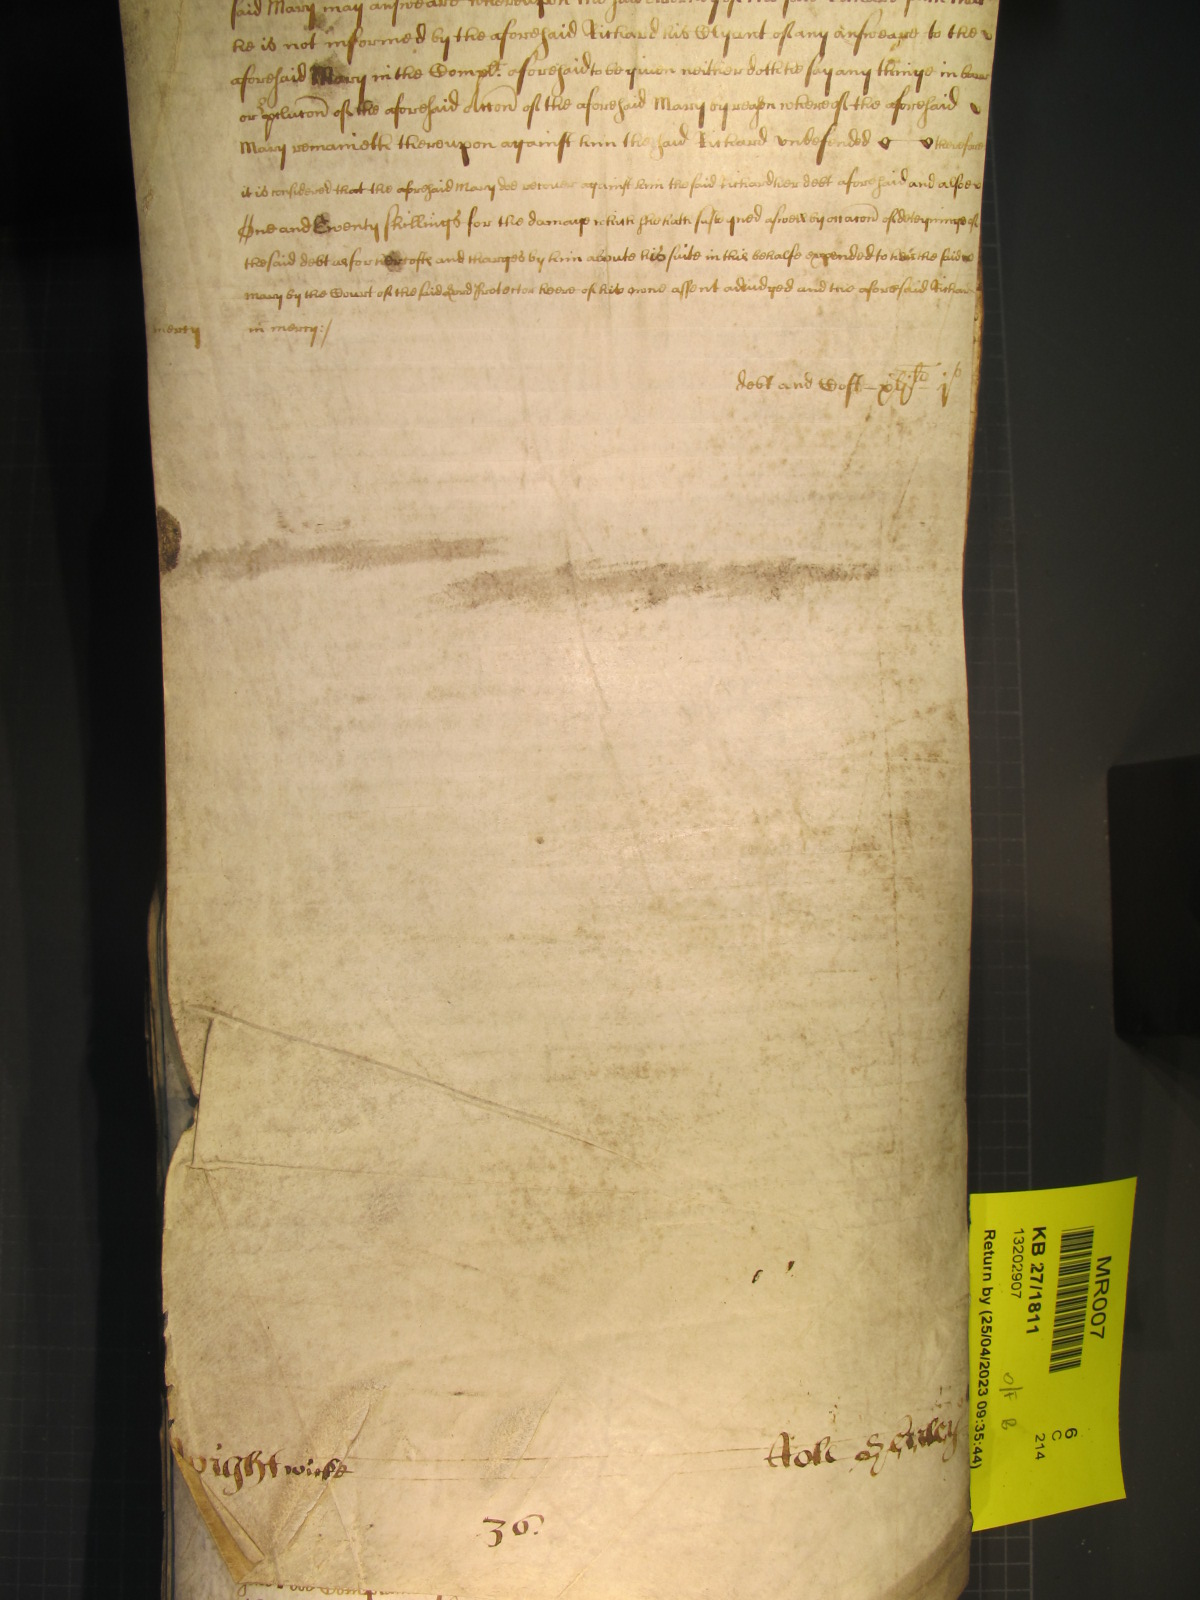 said Mary may answeare whereupon the said
he is not informed by the aforesaid Richard his Clyent of any answeare to the
aforesaid Mary in the Compl.t aforesaid to be given neither doth he say any thinge in barr
or of the aforesaid Accon of the aforesaid Mary by reason whereof the aforesaid
Mary remaineth thereupon against him the said Richard undefended therefore
it is considered that the aforesaid Mary doe recover against him the said Richard her debt aforesaid and alsoe
One and Twenty shillings for the damage which she hath susteyned aswell by occacon of deteyninge of
the said debt as for her costs and charges by him aboute his suite in this behalfe expended to the said
Mary by the Court of the said Lord Protector heere of her owne assent adiudged and the aforesaid Richard
mercy in mercy:/
debt and Cost
wightwicke
Rob Henley
36.
MR007
KB 27/1811
13202907
Return by (25/04/2023 09:35:44)
6
C
214
O/F B